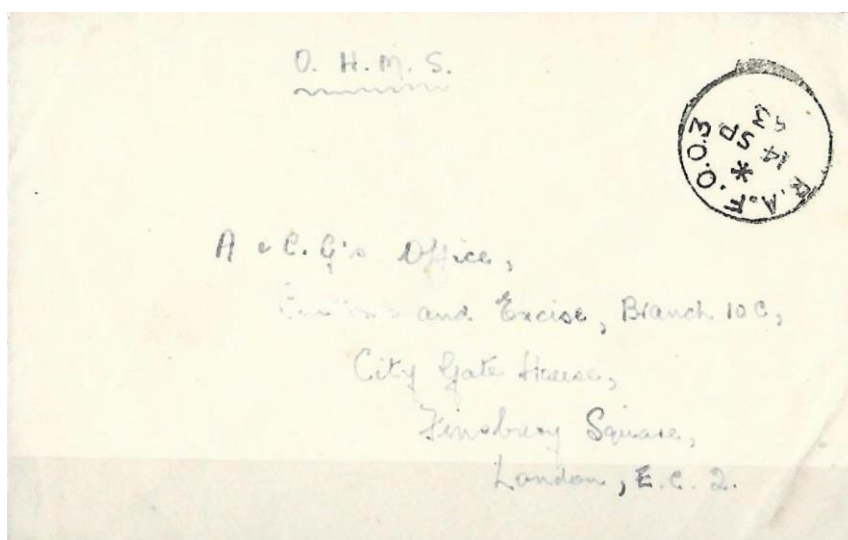 O. H. M. S.
R.A.F. 0.03
*
14 SP
53
A & C. G's Office,
Customs and Excise, Branch 10C,
City Gate House,
Finsbury Square,
London, E.C. 2.